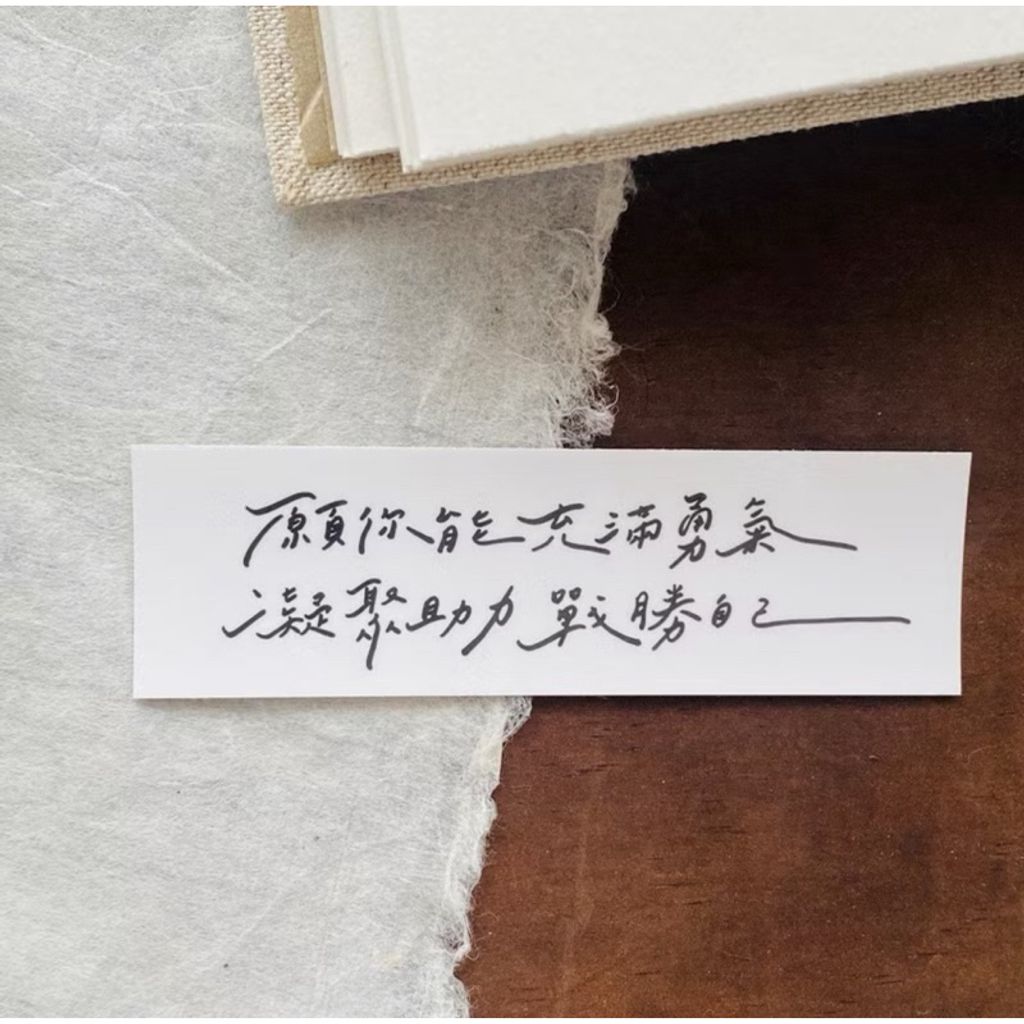 願你能充滿勇氣
凝聚助力戰勝自己